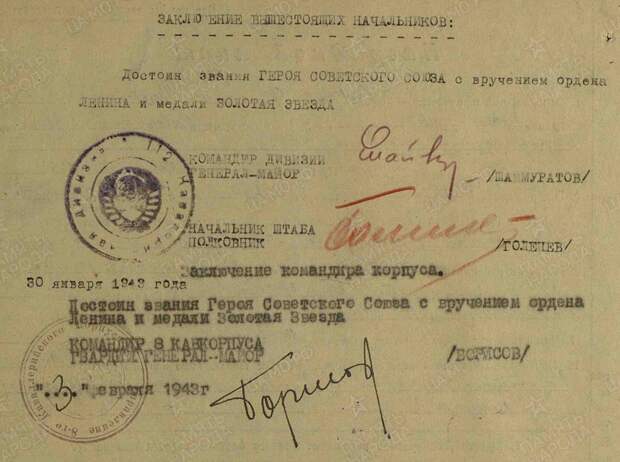 ЗАКЛЮЧЕНИЕ ВЫШЕСТОЯЩИХ НАЧАЛЬНИКОВ:
Достоин звания ГЕРОЯ СОВЕТСКОГО СОЮЗА с вручением ордена
ЛЕНИНА и медали ЗОЛОТАЯ ЗВЕЗДА
КОМАНДИР ДИВИЗИИ
ГЕНЕРАЛ-МАЙОР /ШАЙМУРАТОВ/
НАЧАЛЬНИК ШТАБА
ПОЛКОВНИК /ГОЛЕНЕВ/
Заключение командира корпуса.
30 января 1943 года
Достоин звания Героя Советского Союза с вручением ордена
Ленина и медали Золотая Звезда
КОМАНДИР 8 КАВКОРПУСА
ГВАРДИИ ГЕНЕРАЛ-МАЙОР /БОРИСОВ/
"3" февраля 1943г
Борисов
112 Кавалерийская дивизия